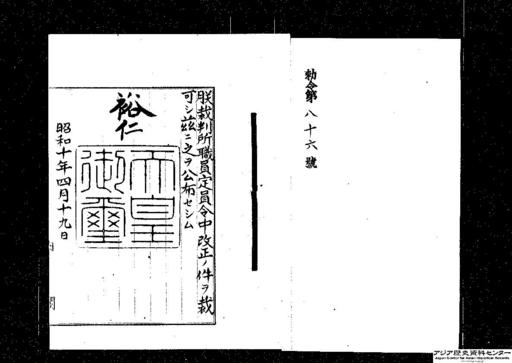 勅令第八十六號
朕裁判所職員定員令中改正ノ件ヲ裁
可シ茲ニ之ヲ公布セシム
裕仁
天皇
御璽
昭和十年四月十九日
内閣
アジア歴史資料センター
Japan Center for Asian Historical Records